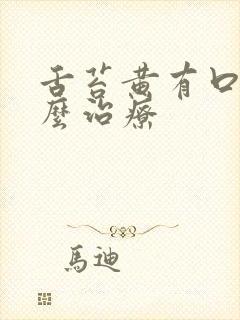 舌苔黄有口
麼治療
馬迪